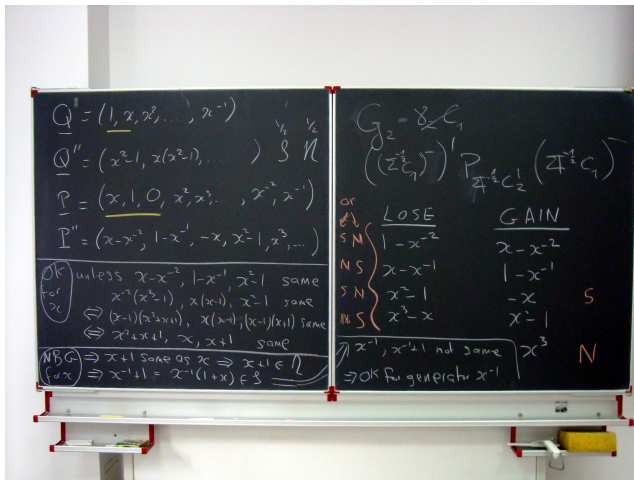 Q = (1, x, x², ..., x⁻¹)
½ ½
Q'' = (x²-1, x(x²-1), ... ) S N
P = (x, 1, 0, x², x³, ..., x⁻², x⁻¹)
P'' = (x-x², 1-x⁻¹, -x, x²-1, x³, ...)
OK for x
unless x-x⁻², 1-x⁻¹, x²-1 same
x⁻²(x³-1), x(x-1), x²-1 same
⇔ (x-1)(x²+x+1), x(x-1), (x-1)(x+1) same
⇔ x²+x+1, x, x+1 same
NBG for x
⇒ x+1 same as x ⇒ x+1 ∈ N
⇒ x⁻¹+1 = x⁻¹(1+x) ∈ S
G₂ = C₁
or
LOSE GAIN
S N 1-x⁻² x-x⁻²
N S x-x⁻¹ 1-x⁻¹
S N x²-1 -x S
N S x³-x x²-1
x⁻¹, x⁻¹+1 not same x³ N
⇒ OK for generator x⁻¹